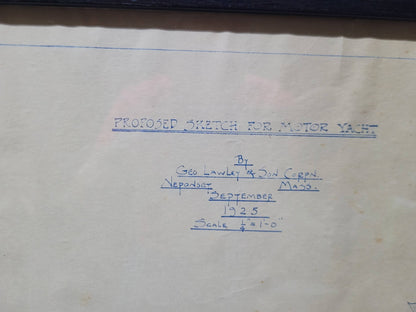 PROPOSED SKETCH FOR MOTOR YACHT.
By
GEO LAWLEY & SON CORPN.
NEPONSET MASS.
SEPTEMBER
1925
SCALE ¼" = 1'-0"